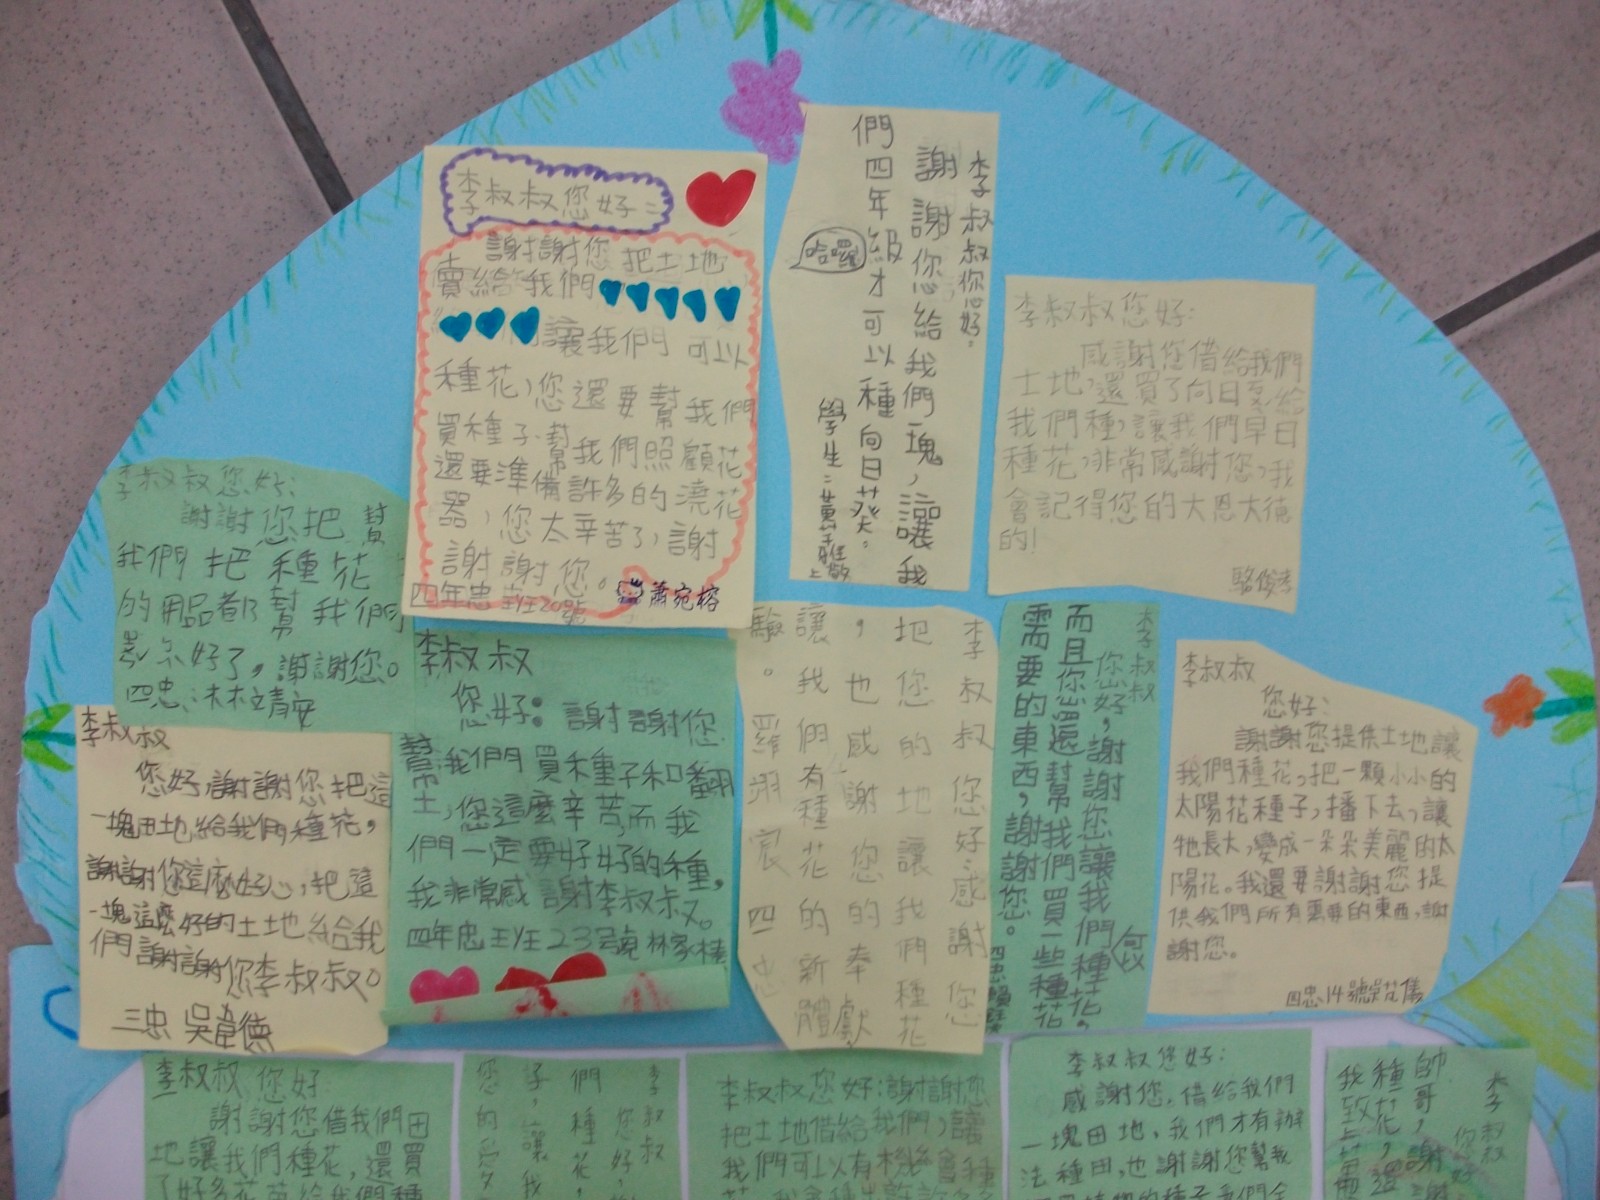 李叔叔您好:
謝謝您把土地
賣給我們
讓我們可以
種花,您還要幫我們
買種子.幫我們照顧花
還要準備許多的澆花
器,您太辛苦了,謝
謝謝您。
四年忠班20號 蕭宛榕
李叔叔你您好。
謝謝您給我們塊,讓我
們四年級才可以種向日葵。
哈囉
學生:
李叔叔您好:
感謝您借給我們
土地,還買了向日葵給
我們種,讓我們早日
種花,非常感謝您,我
會記得您的大恩大德
的!
駱俊
李叔叔您好:
謝謝您把幫
我們把種花
的用品都幫我們
好了,謝謝您。
四忠:林靖安
李叔叔
您好,謝謝您把這
一塊田地給我們種花,
謝謝你這麼好心,把這
一塊這麼好的土地給我
們謝謝你李叔叔。
三忠 吳韋德
李叔叔
您好:謝謝您
幫我們買種子和翻
土,您這麼辛苦,而我
們一定要好好的種,
我非常感謝李叔叔。
四年忠班23號林家
李叔叔您好感謝您
把您的地讓我們種花
,也感謝您的奉獻
讓我們有種花的新體
驗。羅翊宸四忠
李叔叔
您好,謝謝您讓我們種花,
而且您還幫我們買一些種花
需要的東西,謝謝您。
四忠賴
李叔叔
您好:
謝謝您提供土地讓
我們種花,把一顆小小的
太陽花種子,播下去,讓
牠長大,變成一朵朵美麗的太
陽花。我還要謝謝您提
供我們所有需要的東西,謝
謝您。
四忠14號
李叔叔您好
謝謝您借我們田
地讓我們種花,還買
了好多花苗給我們種
李叔叔
您好,
們種花,
子,讓我
您的愛
李叔叔您好:謝謝您
把土地借給我們,讓
我們可以有機會種
李叔叔您好:
感謝您,借給我們
一塊田地,我們才有辦
法種田,也謝謝您幫我
李叔叔
您好
帥哥,謝謝
種花,還
我